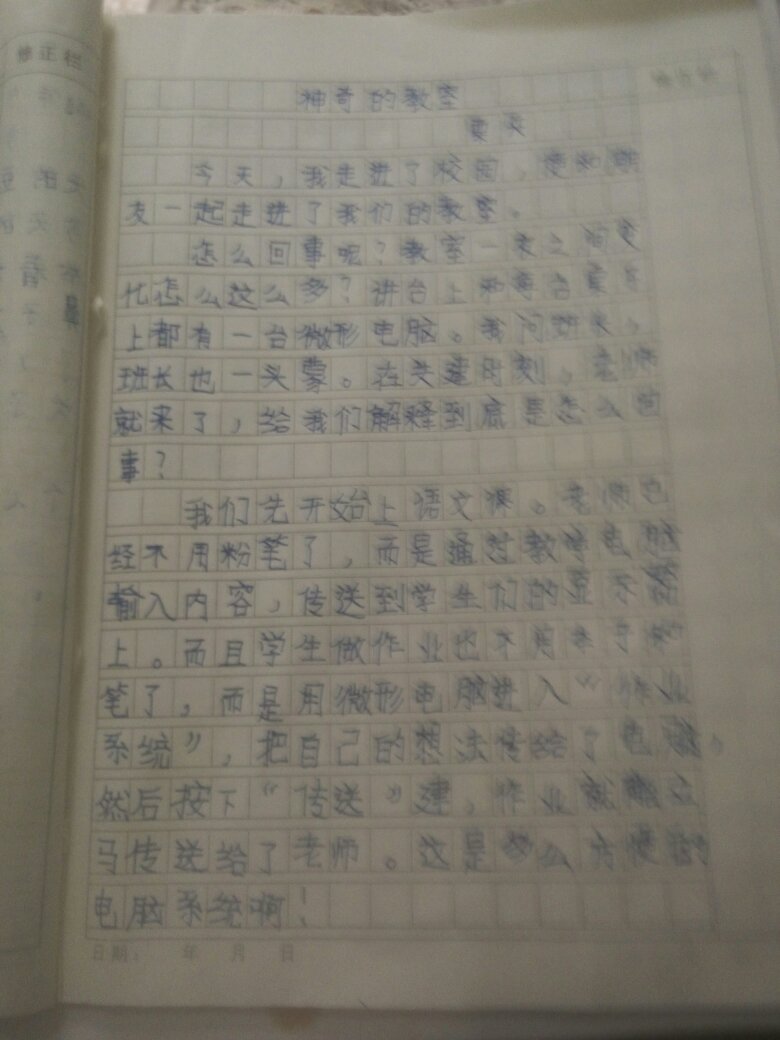 修正栏
神奇的教室
今天，我走进了校园，便和朋
友一起走进了我们的教室。
怎么回事呢？教室一夜之间变
化怎么这么多？讲台上和每台桌子
上都有一台微形电脑。我问班长，
班长也一头蒙。在关建时刻，老师
就来了，给我们解释到底是怎么回
事？
我们先开始上语文课。老师已
经不用粉笔了，而是通过教师电脑
输入内容，传送到学生们的显示器
上。而且学生做作业也不用本子和
笔了，而是用微形电脑进入“作业
系统”，把自己的想法传给了电脑，
然后按下“传送”建，作业就能立
马传送给了老师。这是多么方便的
电脑系统啊！
日期： 年 月 日